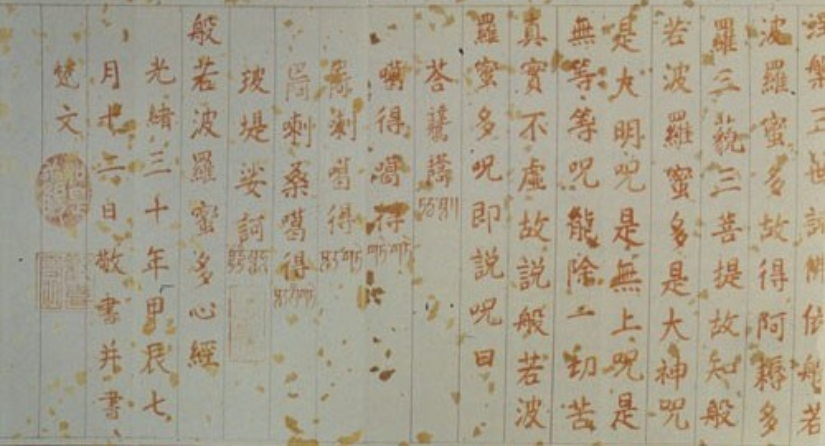 涅槃三世諸佛依般若
波羅蜜多故得阿耨多
羅三藐三菩提故知般
若波羅蜜多是大神呪
是大明呪是無上呪是
無等等呪能除一切苦
真實不虛故說般若波
羅蜜多呪即說呪曰
答
噶得噶得
噶得
喇桑噶得
堤娑訶
般若波羅蜜多心經
光緒三十年甲辰七
月十二日敬書并書
梵文